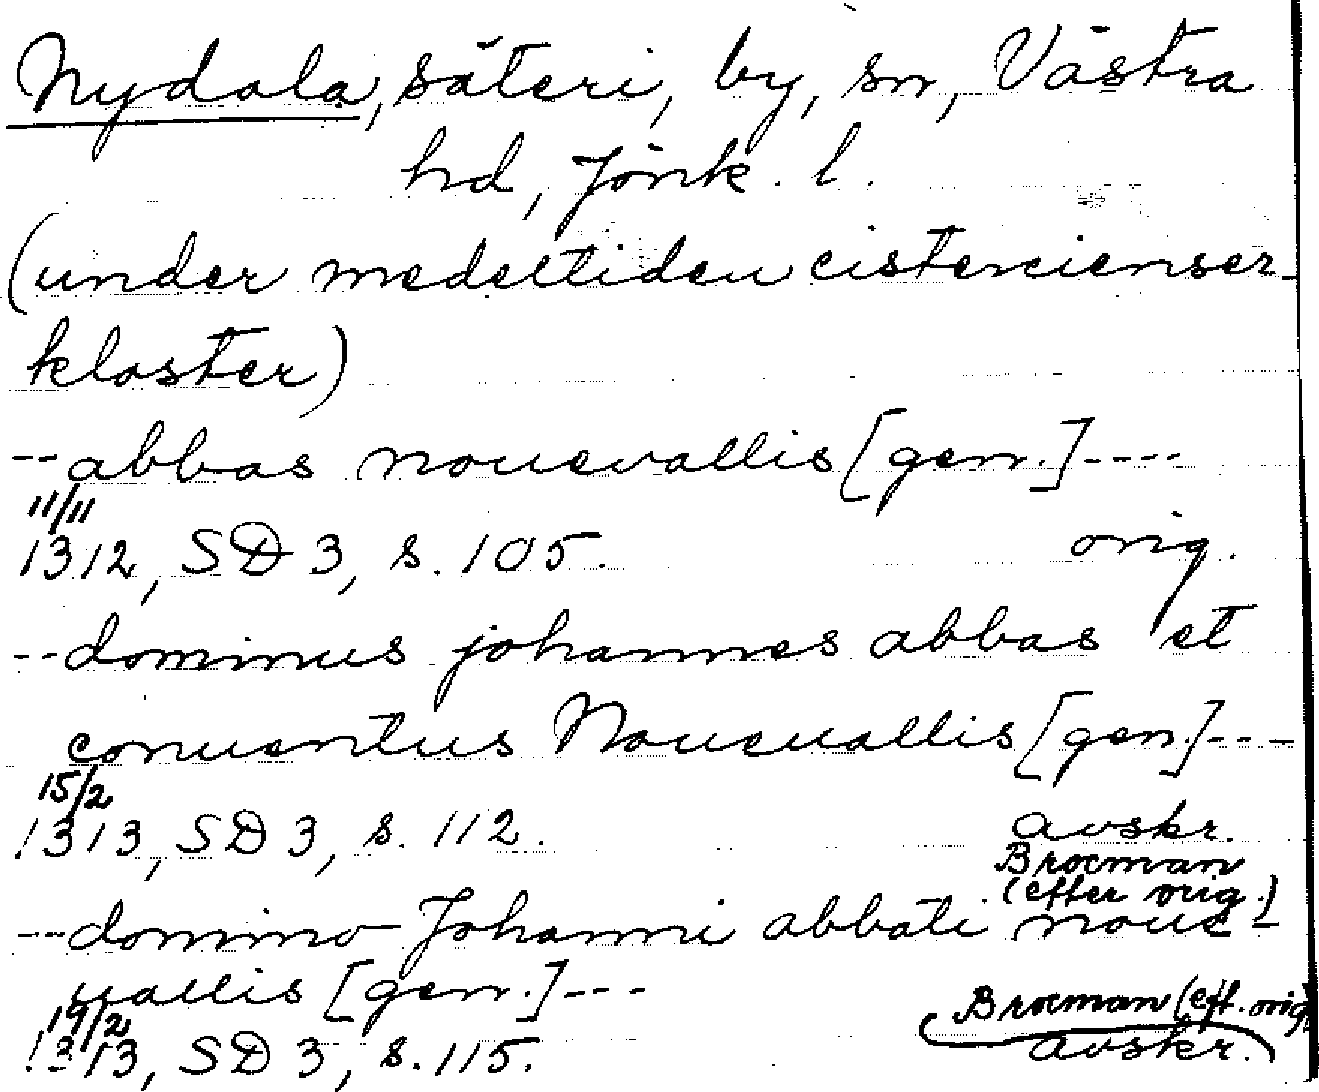 Nydala, säteri, by, sn, Västra
hd, Jönk. l.
(under medeltiden cistercienser-
kloster)
--abbas nouevallis [gen.]----
11/11
1312, SD 3, s. 105. orig.
--dominus johannes abbas et
conuentus Noueuallis [gen.]----
15/2
1313, SD 3, s. 112. avskr.
Brocman
(efter orig.)
---domino Johanni abbati noue-
uallis [gen.]---
19/2 Brocman (eft. orig
1313, SD 3, s. 115. avskr.